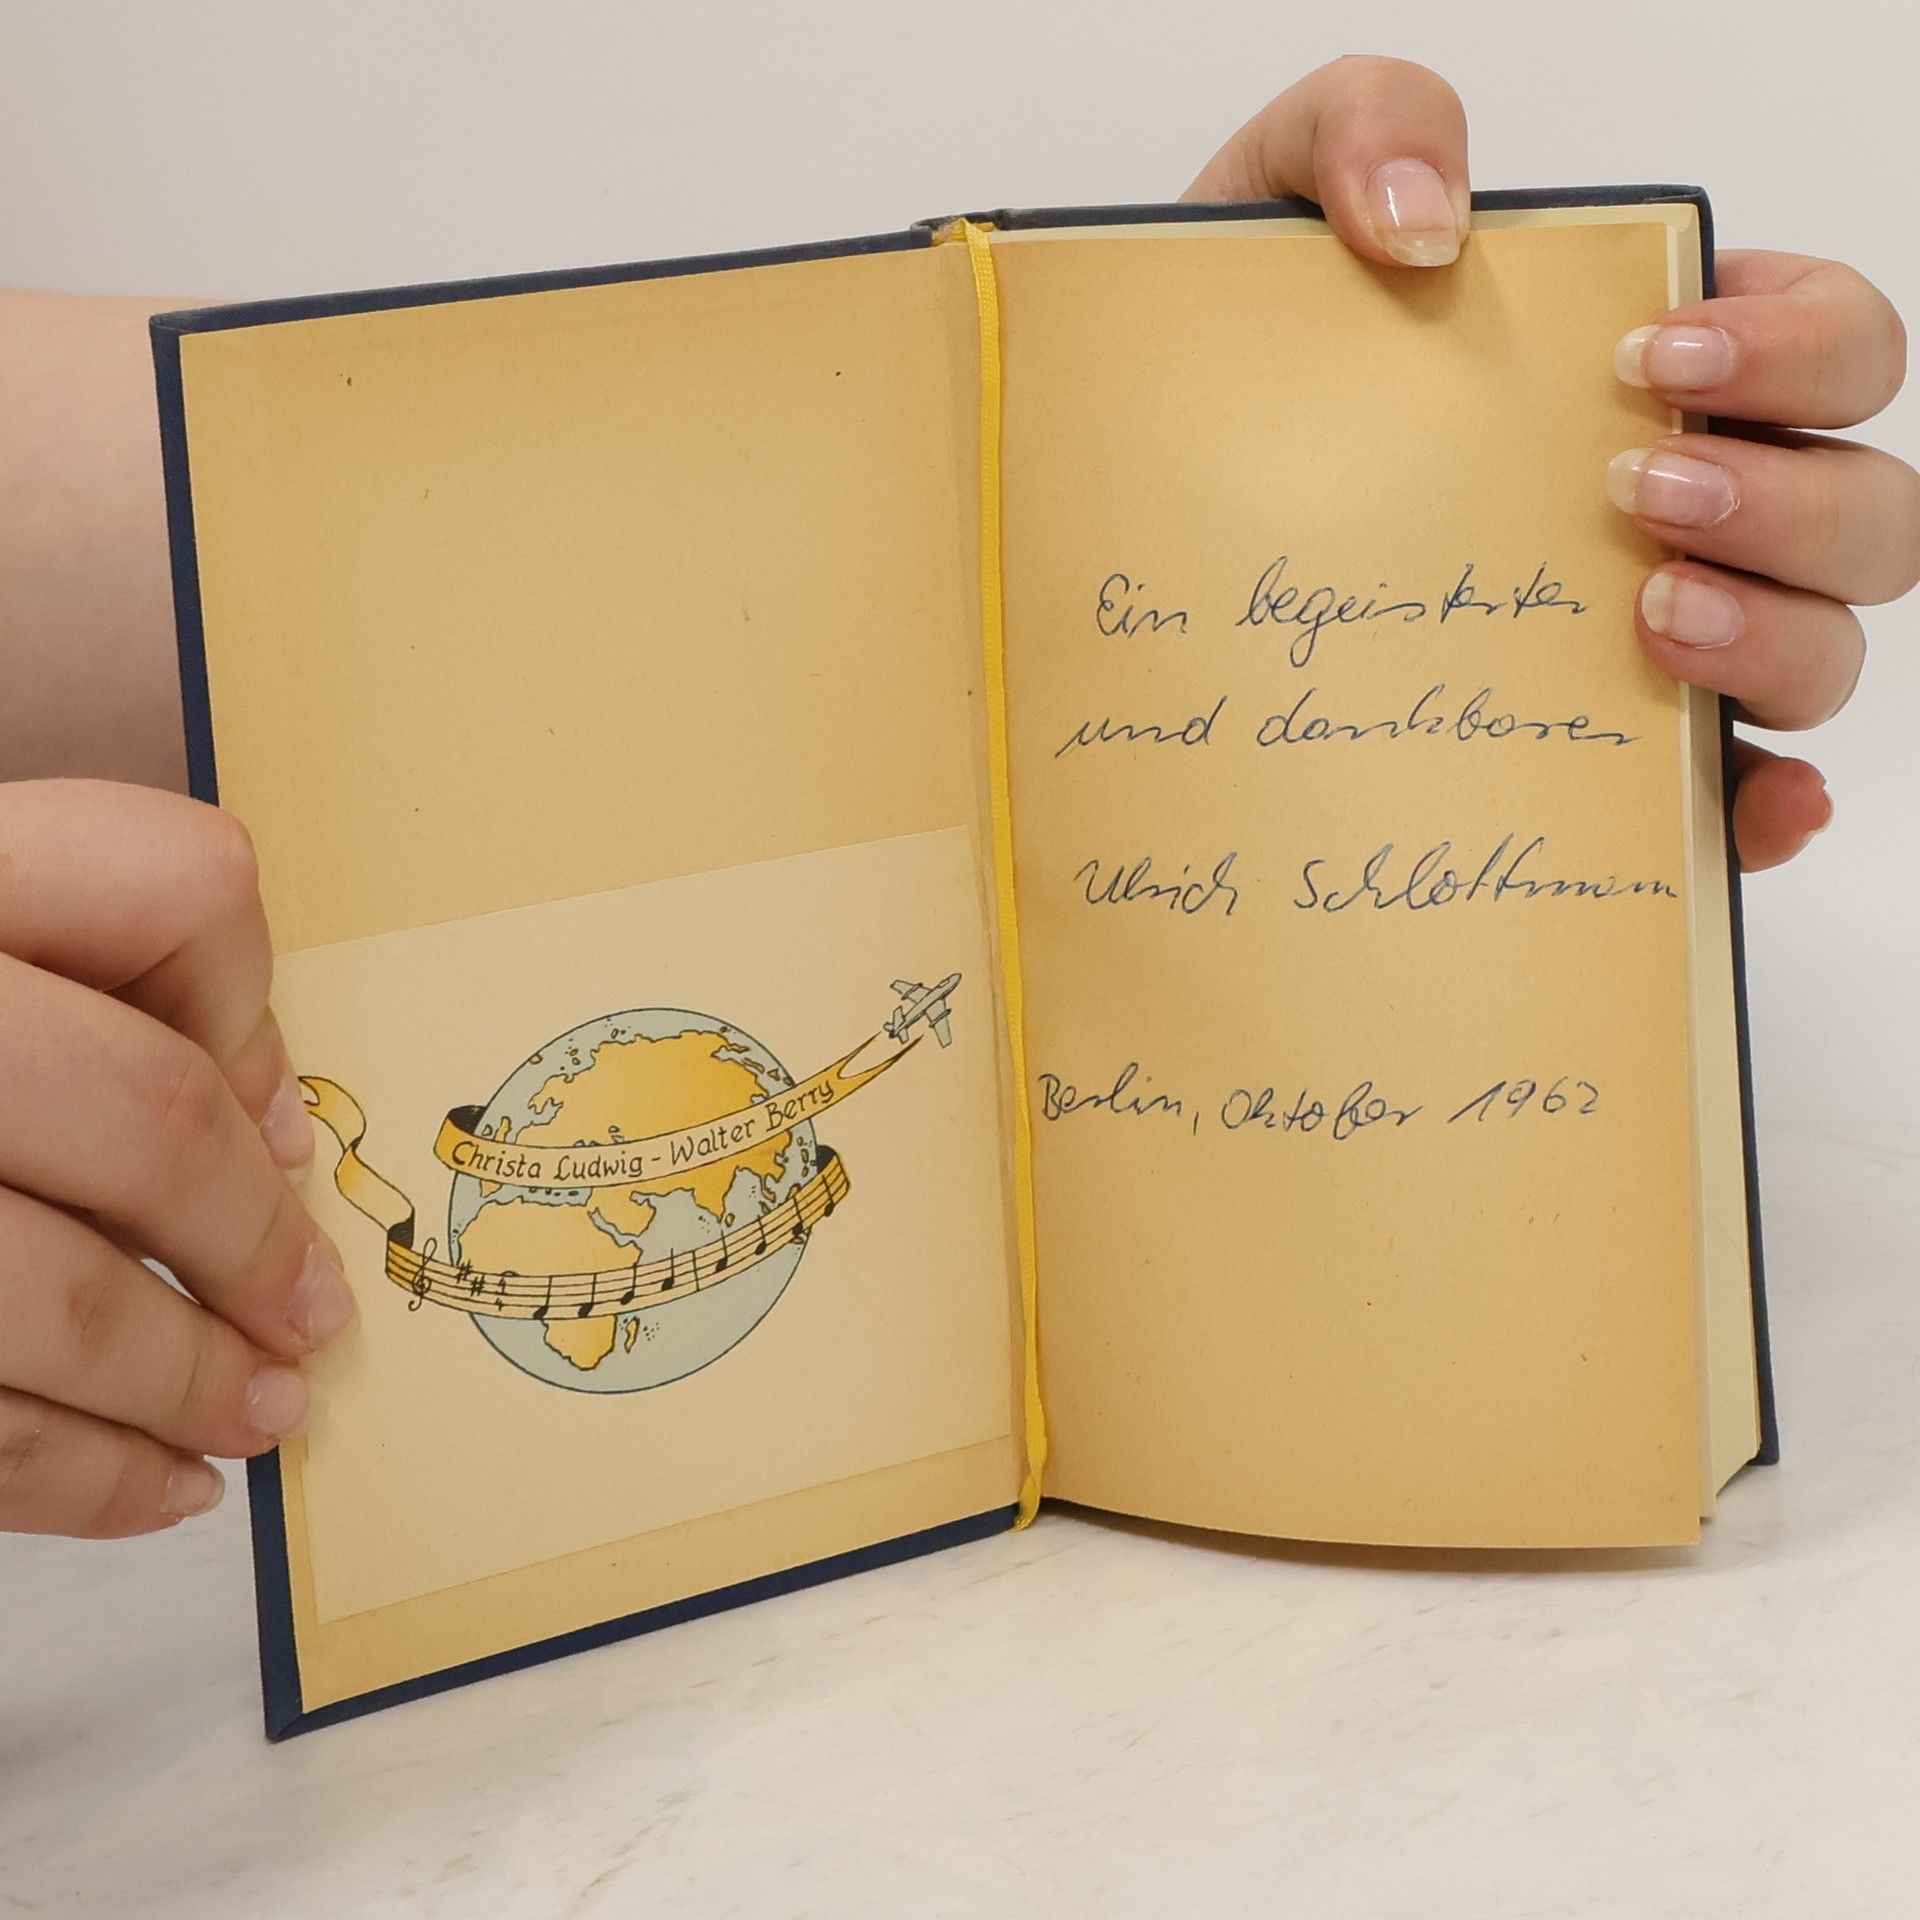 Christa Ludwig - Walter Berry
Ein begeisterter
und dankbarer
Ulrich Schlottmann
Berlin, Oktober 1962